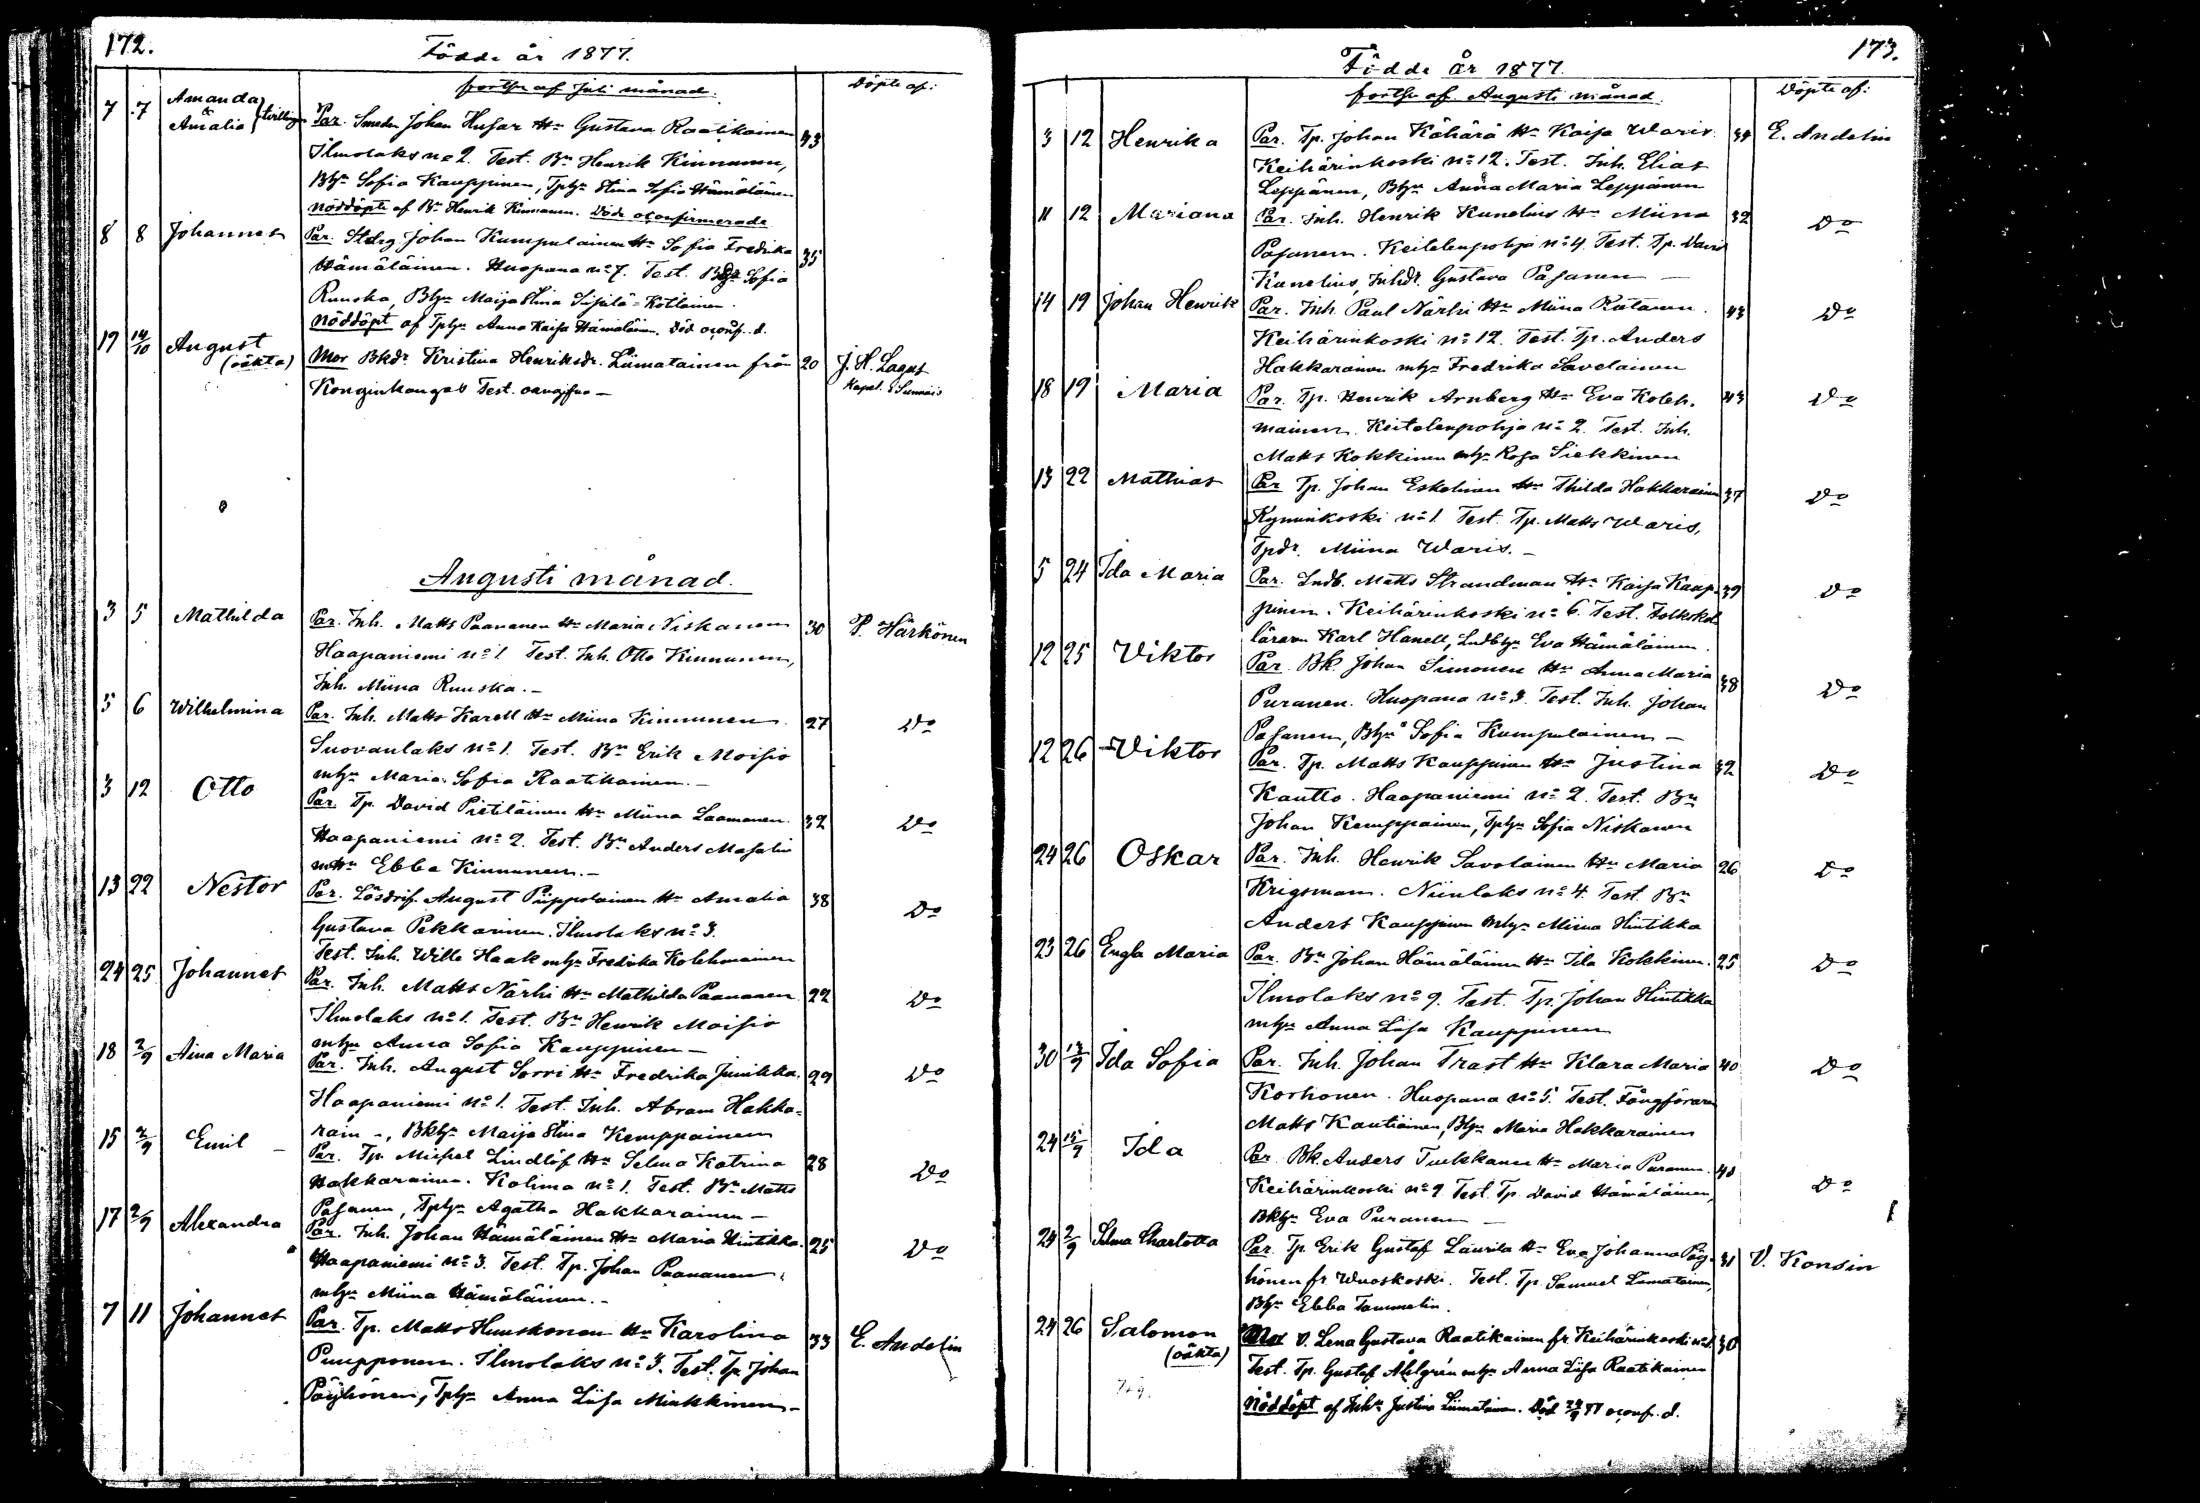 172.
Födde år 1877.
forts. af Juli månad.
Döpte af:
7 7 Amanda & Amalia tvillingar Par. Smeden Johan Husar Hu Gustava Raatikainen 43
Ilmolaks no 2. Test. Bn Henrik Kinnunen,
Bhu Sofia Kauppinen, Tphu Stina Sofia Hämäläinen
Nöddöpte af Bn Henrik Kinnunen. Döde oconfirmerade
8 8 Johannes Par. Stdrg. Johan Kumpulainen Hu Sofia Fredrika 35
Hämäläinen. Huopana no 7. Test. Sofia
Ruuska, Bhu Maija Stina Kotilainen.
Nöddöpt af Tphu Anna Kaisa Hämäläinen. Död oconf. d.
19 14/10 August Mor Bkdr Kristina Henriksdr. Liimatainen från 20 J. H. Lagus
(oäkta) Konginkangas Test. oangifna - Kapel. i Sumiais
Augusti månad.
3 5 Mathilda Par. Inh. Matts Paananen Hu Maria Niskanen 30 P. Härkönen
Haapaniemi no 1 Test. Inh. Otto Kinnunen,
Inh. Miina Ruuska. -
5 6 Wilhelmina Par. Inh. Matts Karell Hu Miina Kinnunen 27 Do
Suovanlaks no 1. Test. Bn Erik Moisio
mhu Maria Sofia Raatikainen. -
3 12 Otto Par. Tp. David Pietiläinen Hu Miina Laamanen. 32 Do
Haapaniemi no 2. Test. Bn Anders Masalin
mhu Ebba Kinnunen. -
13 22 Nestor Par. Lösdrif. August Piippolainen Hu Amalia 38 Do
Gustava Pekkarinen. Ilmolaks no 3.
Test. Inh. Wille Haak mhu Fredrika Kolehmainen
24 25 Johannes Par. Inh. Matts Närhi Hu Mathilda Paananen 22 Do
Ilmolaks no 1. Test. Bn Henrik Moisio
mhu Anna Sofia Kauppinen -
18 2/9 Aina Maria Par. Inh. August Sorri Hu Fredrika Junikka. 29 Do
Haapaniemi no 1. Test. Inh. Abram Hakka-
rain -, Bkhu Maija Stina Kemppainen
15 2/9 Emil - Par. Tp. Michel Lindlöf Hu Selma Katrina 28 Do
Hakkarainen. Kolima no 1. Test. Bn Matts
Pasanen, Tphu Agatha Hakkarainen -
17 2/9 Alexandra Par. Inh. Johan Hämäläinen Hu Maria Hintikka. 25 Do
Haapaniemi no 3. Test. Tp. Johan Paananen,
mhu Miina Hämäläinen. -
7 11 Johannes Par. Tp. Matts Huuskonen Hu Karolina 33 E. Andelin
Puupponen. Ilmolaks no 3. Test. Tp. Johan
Pöyhönen, Tphu Anna Liisa Minkkinen -
173.
Födde år 1877.
forts. af Augusti månad.
Döpte af:
3 12 Henrika Par. Tp. Johan Kähärä Hu Kaisa Waris 34 E. Andelin
Keihärinkoski no 12. Test. Inh. Elias
Leppänen, Bhu Anna Maria Leppänen
11 12 Mariana Par. Inh. Henrik Kunelius Hu Miina 32 Do
Pasanen. Keitelenpohja no 4. Test. Tp. David
Kunelius, Inhdr. Gustava Pasanen -
14 19 Johan Henrik Par. Inh. Paul Närhi Hu Miina Rätänen. 43 Do
Keihärinkoski no 12. Test. Tp. Anders
Hakkarainen mhu Fredrika Savolainen
18 19 Maria Par. Tp. Henrik Arnberg Hu Eva Koleh- 43 Do
mainen. Keitelenpohja no 2. Test. Inh.
Matts Kokkinen mhu Rosa Siekkinen
13 22 Mathias Par. Tp. Johan Eskelinen Hu Thilda Hakkarainen 37 Do
Kyminkoski no 1. Test. Tp. Matts Waris,
Tpdr. Miina Waris. -
5 24 Ida Maria Par. Lndb. Matts Strandman Hu Kaisa Kaup- 39 Do
pinen. Keihärinkoski no 6. Test. Folkskol-
läraren Karl Hanell, Lndbhu Eva Hämäläinen.
12 25 Viktor Par. Bk. Johan Simonen Hu Anna Maria 38 Do
Puranen. Huopana no 3. Test. Inh. Johan
Pasanen, Bhu Sofia Kumpulainen -
12 26 Viktor Par. Tp. Matts Kauppinen Hu Justina 32 Do
Kautto. Haapaniemi no 2. Test. Bn
Johan Kemppainen, Tphu Sofia Niskanen
24 26 Oskar Par. Inh. Henrik Savolainen Hu Maria 26 Do
Krigsman. Niinilaks no 4. Test. Bn
Anders Kauppinen mhu Miina Hintikka
23 26 Engla Maria Par. Bn Johan Hämäläinen Hu Ida Kokkinen. 25 Do
Ilmolaks no 9. Test. Tp. Johan Hintikka
mhu Anna Liisa Kauppinen
30 12/9 Ida Sofia Par. Inh. Johan Trast Hu Klara Maria 40 Do
Korhonen. Huopana no 5. Test. Fångföraren
Matts Kautiainen, Bhu Maria Hakkarainen
24 15/9 Ida Par. Bk. Anders Tuekkanen Hu Maria Puranen. 40 Do
Keihärinkoski no 9 Test. Tp. David Hämäläinen,
Bkhu Eva Puranen -
24 2/9 Selma Charlotta Par. Tp. Erik Gustaf Laurila Hu Eva Johanna Pöy- 31 V. Konsin
hönen fr Wuoskoski. Test. Tp. Samuel Liimatainen,
Bhu Ebba Tammelin.
24 26 Salomon Mor Lena Gustava Raatikainen fr Keihärinkoski 30
(oäkta) Test. Tp. Gustaf Ahlgrén mhu Anna Liisa Raatikainen
Nöddöpt af Inhu Justina Liimatainen. Död 77 oconf. d.